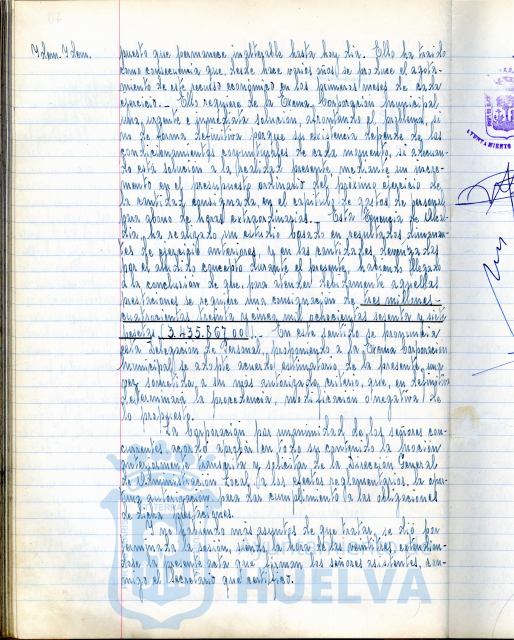 Idem. Idem.
puesto que permanece inalterable hasta hoy día. Ello ha traido
como consecuencia que, desde hace varios años, se produce el agota-
miento de este recurso económico en los primeros meses de cada
ejercicio.- Ello requiere de la Excma. Corporación Municipal
una, urgente e inmediata solución, afrontando el problema, si
no de forma definitiva porque su existencia depende de los
condicionamientos coyunturales de cada momento, si adecuan-
do esta solución a la realidad presente, mediante un incre-
mento en el presupuesto ordinario del próximo ejercicio de
la cantidad consignada en el capítulo de gastos de personal
para abono de horas extraordinarias.- Esta Tenencia de Alcal-
día, ha realizado un estudio basado en resultados dimanan-
tes de ejercicios anteriores, y en las cantidades devengadas
por el aludido concepto durante el presente, habiendo llegado
a la conclusión de que para atender debidamente aquellas
prestaciones se requiere una consignación de tres millones
cuatrocientas treinta y cinco mil ochocientas sesenta y siete
pesetas (3.435.867,00). En este sentido se pronuncia
esta Delegación de Personal, proponiendo a la Excma. Corporación
Municipal se adopte acuerdo estimatorio de la presente, una
vez sometida, a su más autorizado criterio, que, en definitiva
determinará la procedencia, modificación o negativa de
lo propuesto.
La Corporación por unanimidad de los señores con-
currentes acordó aprobar en todo su contenido la moción
anteriormente transcrita y solicitar de la Dirección General
de Administración Local, a los efectos reglamentarios, la opor-
tuna autorización para dar cumplimiento a las obligaciones
de dicha prestaciones.
Y no habiendo más asuntos de que tratar, se dió por
terminada la sesión, siendo la hora de las veintitres, extendién-
dose la presente acta que firman los señores asistentes, con-
migo el Secretario que certifico.
AYUNTAMIENTO
HUELVA